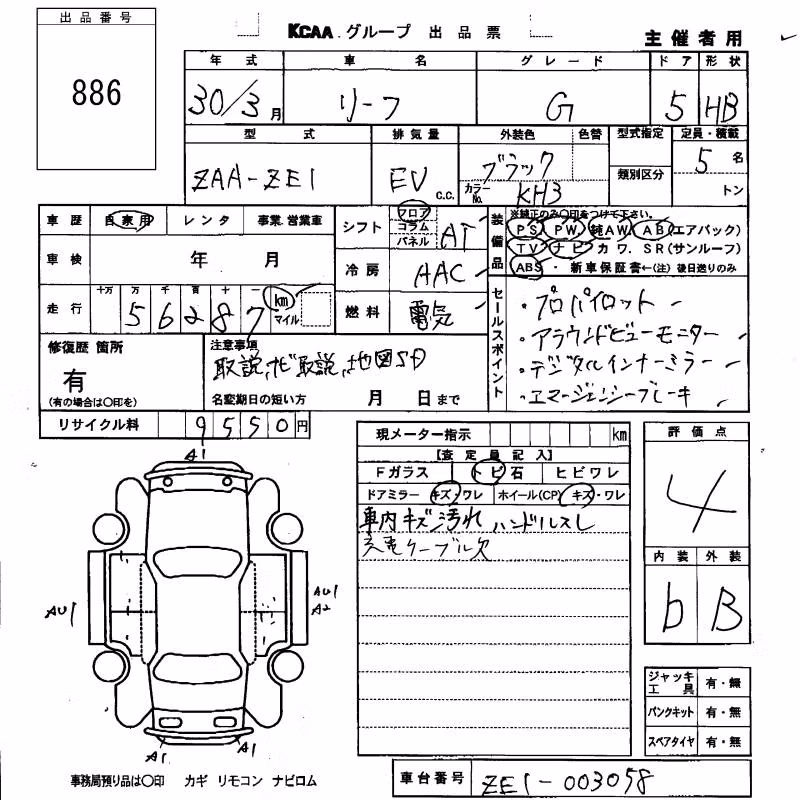 出品番号
886
KCAA グループ 出品票
主催者用
年式 車名 グレード ドア 形状
30/3月 リーフ G 5 HB
型式 排気量 外装色 色替 型式指定 定員・積載
ZAA-ZE1 EV C.C. ブラック カラーNo. KH3 類別区分 5名 トン
車歴 自家用 レンタ 事業 営業車
シフト フロア コラム パネル AT
装備品 ※純正のみ○印をつけて下さい。
PS PW 純AW AB (エアバック)
TV ナビ カワ. SR(サンルーフ)
ABS ・ 新車保証書←(注)後日送りのみ
車検 年 月
冷房 AAC
走行 十万 万 千 百 十 一 km マイル
56287
燃料 電気
セールスポイント
・プロパイロット
・アラウンドビューモニター
・デジタルインナーミラー
・エマージェンシーブレーキ
修復歴 箇所
有
(有の場合は○印を)
注意事項
取説,ナビ取説,地図SD
名変期日の短い方 月 日まで
リサイクル料 9550円
現メーター指示 km
【査定員記入】
Fガラス トビ石 ヒビワレ
ドアミラー キズ・ワレ ホイール(CP) キズ・ワレ
車内キズ汚れ ハンドルスレ
充電ケーブル欠
評価点
4
内装 外装
b B
A1
AU1
AU1
A2
A1
A1
ジャッキ 工具 有・無
パンクキット 有・無
スペアタイヤ 有・無
事務局預り品は○印 カギ リモコン ナビロム
車台番号 ZE1-003058